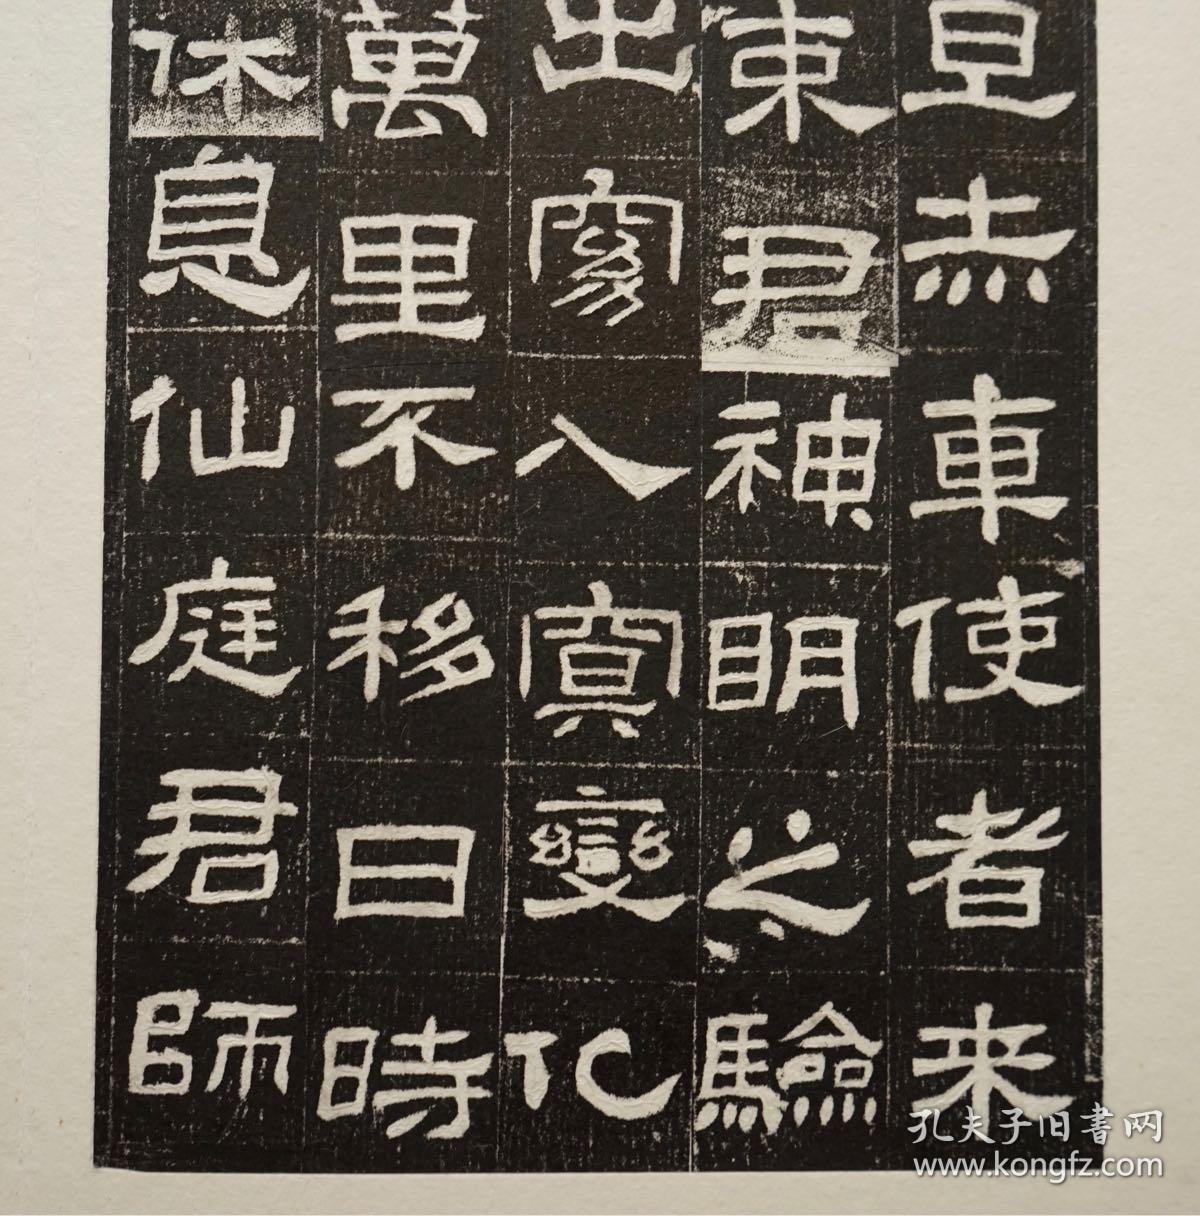 旦赤車使者来
束君神眀之驗
出窈入冥變化
萬里不移日時
休息仙庭君師
孔夫子旧書网
www.kongfz.com